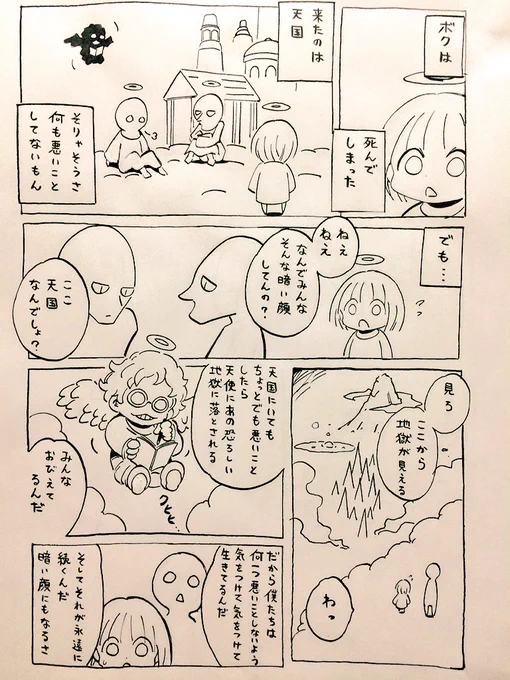 ボクは
死んで
しまった
来たのは
天国
そりゃそうさ
何も悪いこと
してないもん
でも…
ねえ
ねえ
なんでみんな
そんな暗い顔
してんの?
ここ
天国
なんでしょ?
見ろ
ここから
地獄が見える
わっ
天国にいても
ちょっとでも悪いこと
したら
天使にあの恐ろしい
地獄に落とされる
みんな
おびえて
るんだ
だから僕たちは
何一つ悪いことしないよう
気をつけて気をつけて
生きてるんだ
そしてそれが永遠に
続くんだ
暗い顔にもなるさ